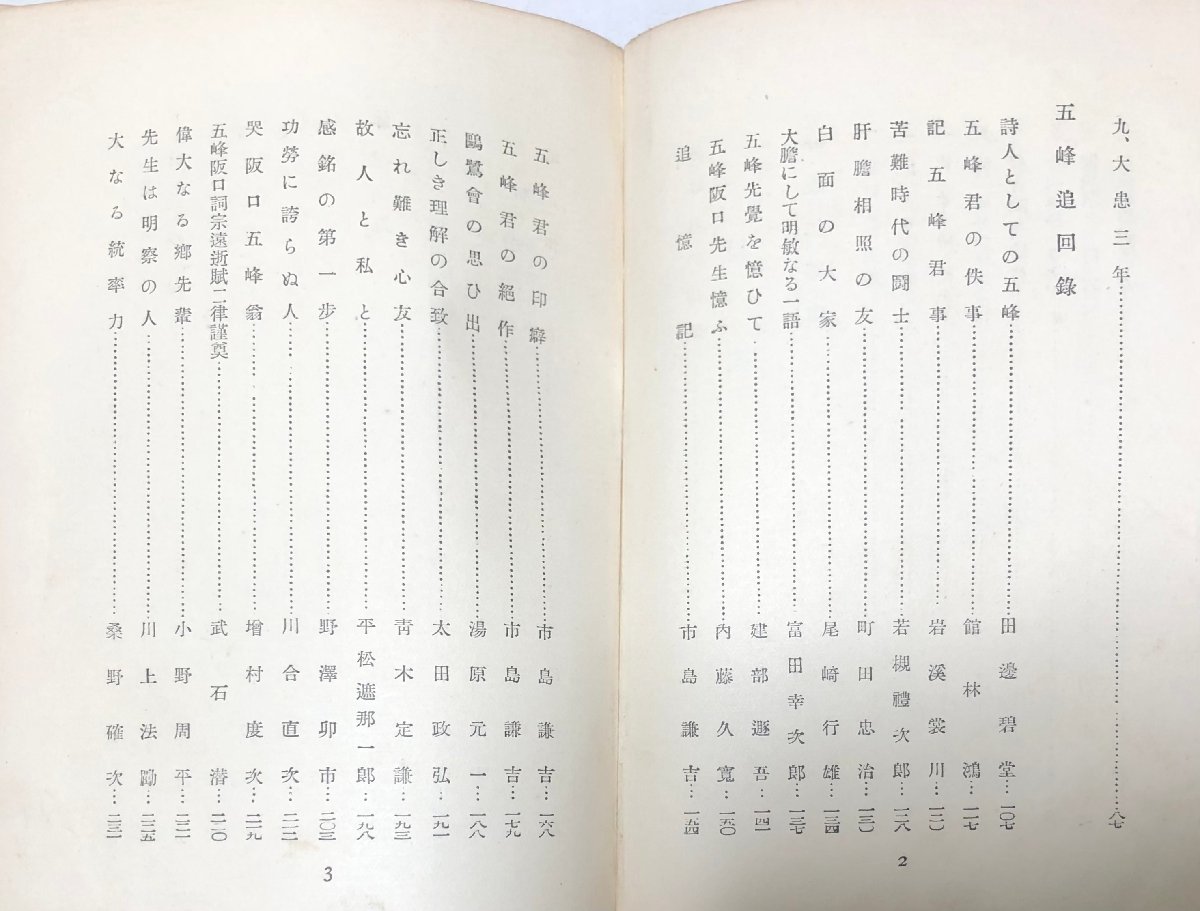 九、大患三年……八七
五峰追回錄
詩人としての五峰……田邊碧堂…一〇七
五峰君の佚事……館林鴻…一一七
記五峰君事……岩溪裳川…一二一
苦難時代の鬪士……若槻禮次郎…一二八
肝膽相照の友……町田忠治…一三〇
白面の大家……尾崎行雄…一三四
大膽にして明敏なる一語……富田幸次郎…一三七
五峰先覺を憶ひて……建部遯吾…一四一
五峰阪口先生憶ふ……內藤久寬…一五〇
追憶記……市島謙吉…一五四
2
五峰君の印癖……市島謙吉…一六八
五峰君の絕作……市島謙吉…一七九
鷗鷺會の思ひ出……湯原元一…一八八
正しき理解の合致……太田政弘…一九一
忘れ難き心友……靑木定謙…一九三
故人と私と……平松遮那一郎…一九八
感銘の第一步……野澤卯市…二〇三
功勞に誇らぬ人……川合直次…二一二
哭阪口五峰翁……增村度次…二一九
五峰阪口詞宗遠逝賦二律謹奠……武石潜…二二〇
偉大なる鄕先輩……小野周平…二二一
先生は明察の人……川上法勵…二二五
大なる統率力……桑野確次…二三一
3